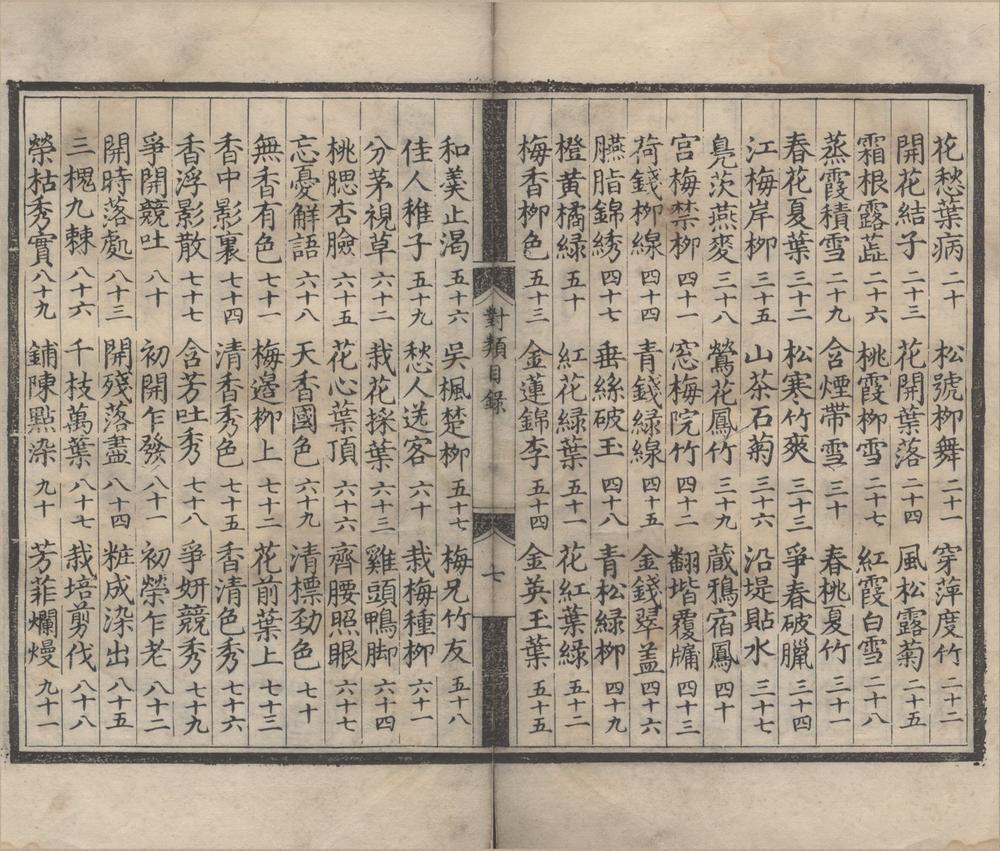 花愁葉病二十 松號柳舞二十一 穿萍度竹二十二
開花結子二十三 花開葉落二十四 風松露菊二十五
霜根露蕋二十六 桃霞柳雪二十七 紅霞白雪二十八
蒸霞積雪二十九 含煙帶雪三十 春桃夏竹三十一
春花夏葉三十二 松寒竹爽三十三 爭春破臘三十四
江梅岸柳三十五 山茶石菊三十六 沿堤貼水三十七
鳧茨燕麥三十八 鶯花鳳竹三十九 蔵鴉宿鳳四十
宮梅禁柳四十一 窓梅院竹四十二 翻堦覆牖四十三
荷錢柳線四十四 青錢緑線四十五 金錢翠盖四十六
臙脂錦綉四十七 垂絲破玉四十八 青松緑柳四十九
橙黄橘緑五十 紅花緑葉五十一 花紅葉緑五十二
梅香柳色五十三 金蓮錦李五十四 金英玉葉五十五
對類目錄
七
和羹止渴五十六 吳楓楚柳五十七 梅兄竹友五十八
佳人稚子五十九 愁人送客六十 栽梅種柳六十一
分茅視草六十二 栽花採葉六十三 雞頭鴨脚六十四
桃腮杏臉六十五 花心葉頂六十六 齊腰照眼六十七
忘憂解語六十八 天香國色六十九 清標勁色七十
無香有色七十一 梅邉柳上七十二 花前葉上七十三
香中影裏七十四 清香秀色七十五 香清色秀七十六
香浮影散七十七 含芳吐秀七十八 爭妍競秀七十九
爭開競吐八十 初開乍發八十一 初榮乍老八十二
開時落處八十三 開殘落盡八十四 粧成染出八十五
三槐九棘八十六 千枝萬葉八十七 栽培剪伐八十八
榮枯秀實八十九 鋪陳點染九十 芳菲爛熳九十一